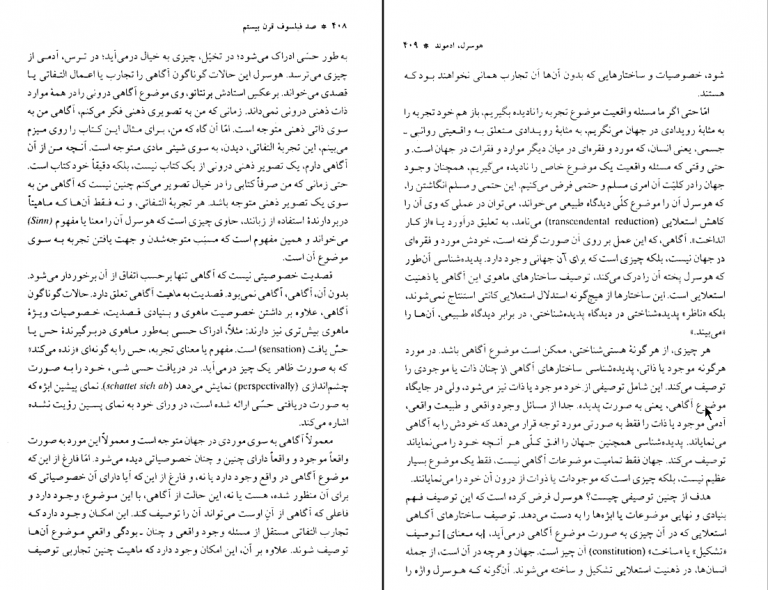 ۴۰۸ * صد فیلسوف قرن بیستم
به طور حسّی ادراک می‌شود؛ در تخیّل، چیزی به خیال درمی‌آید؛ در ترس، آدمی از
چیزی می‌ترسد. هوسرل این حالات گوناگون آگاهی را تجارب یا اعمال التفاتی یا
قصدی می‌خواند. برعکس استادش برنتانو، وی موضوع آگاهی درونی را در همهٔ موارد
ذات ذهنی درونی نمی‌داند. زمانی که من به تصویری ذهنی فکر می‌کنم، آگاهی من به
سوی ذاتی ذهنی متوجه است. امّا آن گاه که من، برای مثال این کتاب را روی میزم
می‌بینم، این تجربهٔ التفاتی، دیدن، به سوی شیئی مادی متوجه است. آنچه من از آن
آگاهی دارم، یک تصویر ذهنی درونی از یک کتاب نیست، بلکه دقیقاً خود کتاب است.
حتی زمانی که من صرفاً کتابی را در خیال تصویر می‌کنم چنین نیست که آگاهی من به
سوی یک تصویر ذهنی متوجه باشد. هر تجربهٔ التفاتی، و نه فقط آن‌ها که ماهیتاً
دربردارندهٔ استفاده از زبانند، حاوی چیزی است که هوسرل آن را معنا یا مفهوم (Sinn)
می‌خواند و همین مفهوم است که مسبّب متوجه‌شدن و جهت یافتن تجربه به سوی
موضوع آن است.
قصدیت خصوصیتی نیست که آگاهی تنها برحسب اتفاق از آن برخوردار می‌شود.
بدون آن، آگاهی، آگاهی نمی‌بود. قصدیت به ماهیت آگاهی تعلق دارد. حالات گوناگون
آگاهی، علاوه بر داشتن خصوصیت ماهوی و بنیادی قصدیت، خصوصیات ویژهٔ
ماهوی بیش‌تری نیز دارند: مثلاً، ادراک حسی به‌طور ماهوی دربرگیرندهٔ حس یا
حسّ یافت (sensation) است. مفهوم یا معنای تجربه، حس را به گونه‌ای «زنده می‌کند»
که به صورت ظاهر یک چیز درمی‌آید. در دریافت حسی شیء، خود را به صورت
چشم‌اندازی (perspectivally) نمایش می‌دهد (schattet sich ab). نمای پیشین ابژه که
به صورت دریافتی حسّی ارائه شده است، در ورای خود به نمای پسین رؤیت نشده
اشاره می‌کند.
معمولاً آگاهی به سوی موردی در جهان متوجه است و معمولاً این مورد به صورت
واقعاً موجود و واقعاً دارای چنین و چنان خصوصیاتی دیده می‌شود. امّا فارغ از این که
موضوع آگاهی در واقع وجود دارد یا نه، و فارغ از این‌که آیا دارای آن خصوصیاتی که
برای آن منظور شده، هست یا نه، این حالت از آگاهی، با این موضوع، وجود دارد و
فاعلی که آگاهی از آنِ اوست می‌تواند آن را توصیف کند. این امکان وجود دارد که
تجارب التفاتی مستقل از مسئله وجود واقعی و چنان ـ بودگی واقعیِ موضوع آن‌ها
توصیف شوند. علاوه بر آن، این امکان وجود دارد که ماهیت چنین تجاربی توصیف
هوسرل، ادموند * ۴۰۹
شود، خصوصیات و ساختارهایی که بدون آن‌ها آن تجارب همانی نخواهند بود که
هستند.
امّا حتی اگر ما مسئله واقعیت موضوع تجربه را نادیده بگیریم، باز هم خود تجربه را
به مثابهٔ رویدادی در جهان می‌نگریم، به مثابهٔ رویدادی متعلق به واقعیتی روانی ـ
جسمی، یعنی انسان، که مورد و فقره‌ای در میان دیگر موارد و فقرات در جهان است. و
حتی وقتی که مسئله واقعیت یک موضوع خاص را نادیده می‌گیریم، همچنان وجود
جهان را در کلیّت آن امری مسلم و حتمی فرض می‌کنیم. این حتمی و مسلم انگاشتن را،
که هوسرل آن را موضوع کلّی دیدگاه طبیعی می‌خواند، می‌توان در عملی که وی آن را
کاهش استعلایی (transcendental reduction) می‌نامد، به تعلیق درآورد یا «از کار
انداخت». آگاهی، که این عمل بر روی آن صورت گرفته است، خودش مورد و فقره‌ای
در جهان نیست، بلکه چیزی است که برای آن جهانی وجود دارد. پدیده‌شناسی آن‌طور
که هوسرل پخته آن را درک می‌کند، توصیف ساختارهای ماهوی این آگاهی یا ذهنیت
استعلایی است. این ساختارها از هیچ‌گونه استدلال استعلایی کانتی استنتاج نمی‌شوند،
بلکه «ناظر» پدیده‌شناختی در دیدگاه پدیده‌شناختی، در برابر دیدگاه طبیعی، آن‌ها را
«می‌بیند.»
هر چیزی، از هر گونهٔ هستی‌شناختی، ممکن است موضوع آگاهی باشد. در مورد
هرگونه موجود یا ذاتی، پدیده‌شناسی ساختارهای آگاهی از چنان ذات یا موجودی را
توصیف می‌کند. این شامل توصیفی از خود موجود یا ذات نیز می‌شود، ولی در جایگاه
موضوع آگاهی، یعنی به صورت پدیده. جدا از مسائل وجود واقعی و طبیعت واقعی،
آدمی موجود یا ذات را فقط به صورتی مورد توجه قرار می‌دهد که خودش را به آگاهی
می‌نمایاند. پدیده‌شناسی همچنین جهان را افق کلّی هر آنچه خود را می‌نمایاند
توصیف می‌کند. جهان فقط تمامیت موضوعات آگاهی نیست، فقط یک موضوع بسیار
عظیم نیست، بلکه چیزی است که موجودات یا ذوات از درون آن خود را می‌نمایانند.
هدف از چنین توصیفی چیست؟ هوسرل فرض کرده است که این توصیف فهم
بنیادی و نهایی موضوعات یا ابژه‌ها را به دست می‌دهد. توصیف ساختارهای آگاهی
استعلایی که در آن چیزی به صورت موضوع آگاهی درمی‌آید، [به معنای] توصیف
«تشکیل» یا «ساخت» (constitution) آن چیز است. جهان و هرچه در آن است، از جمله
انسان‌ها، در ذهنیت استعلایی تشکیل و ساخته می‌شوند. آن‌گونه که هوسرل واژه را